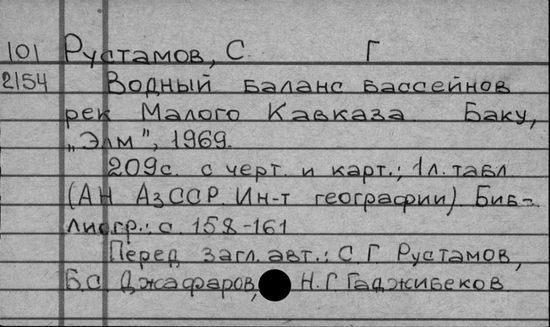 101 Рустамов, С. Г
2154 Водный баланс бассейнов
рек Малого Кавказа. Баку,
„Элм", 1969.
209с. с черт. и карт.; 1л. табл
(АН АзССР. Ин-т географии) Биб-
лиогр.: с. 158-161
Перед загл. авт.: С. Г Рустамов,
Б.С. Джафаров, Н. Г. Гаджибеков.